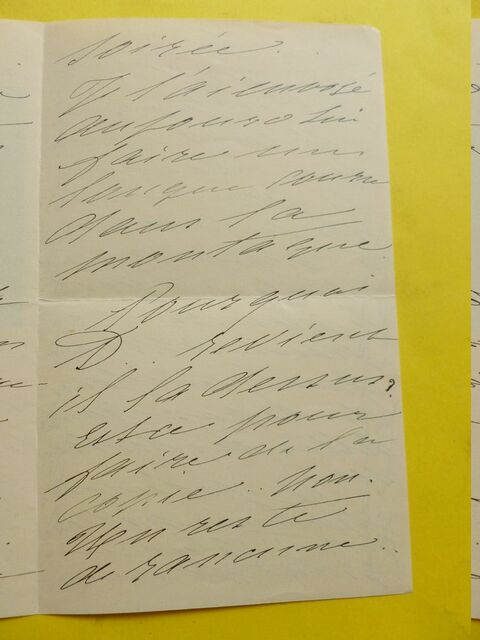 soirée.
Je l'ai envoyé
aujourd'hui
faire une
longue course
dans la
montagne
Pourquoi
D. revient
il la dessus?
Est ce pour
faire de la
copie.. non.
Un reste
de rancune..